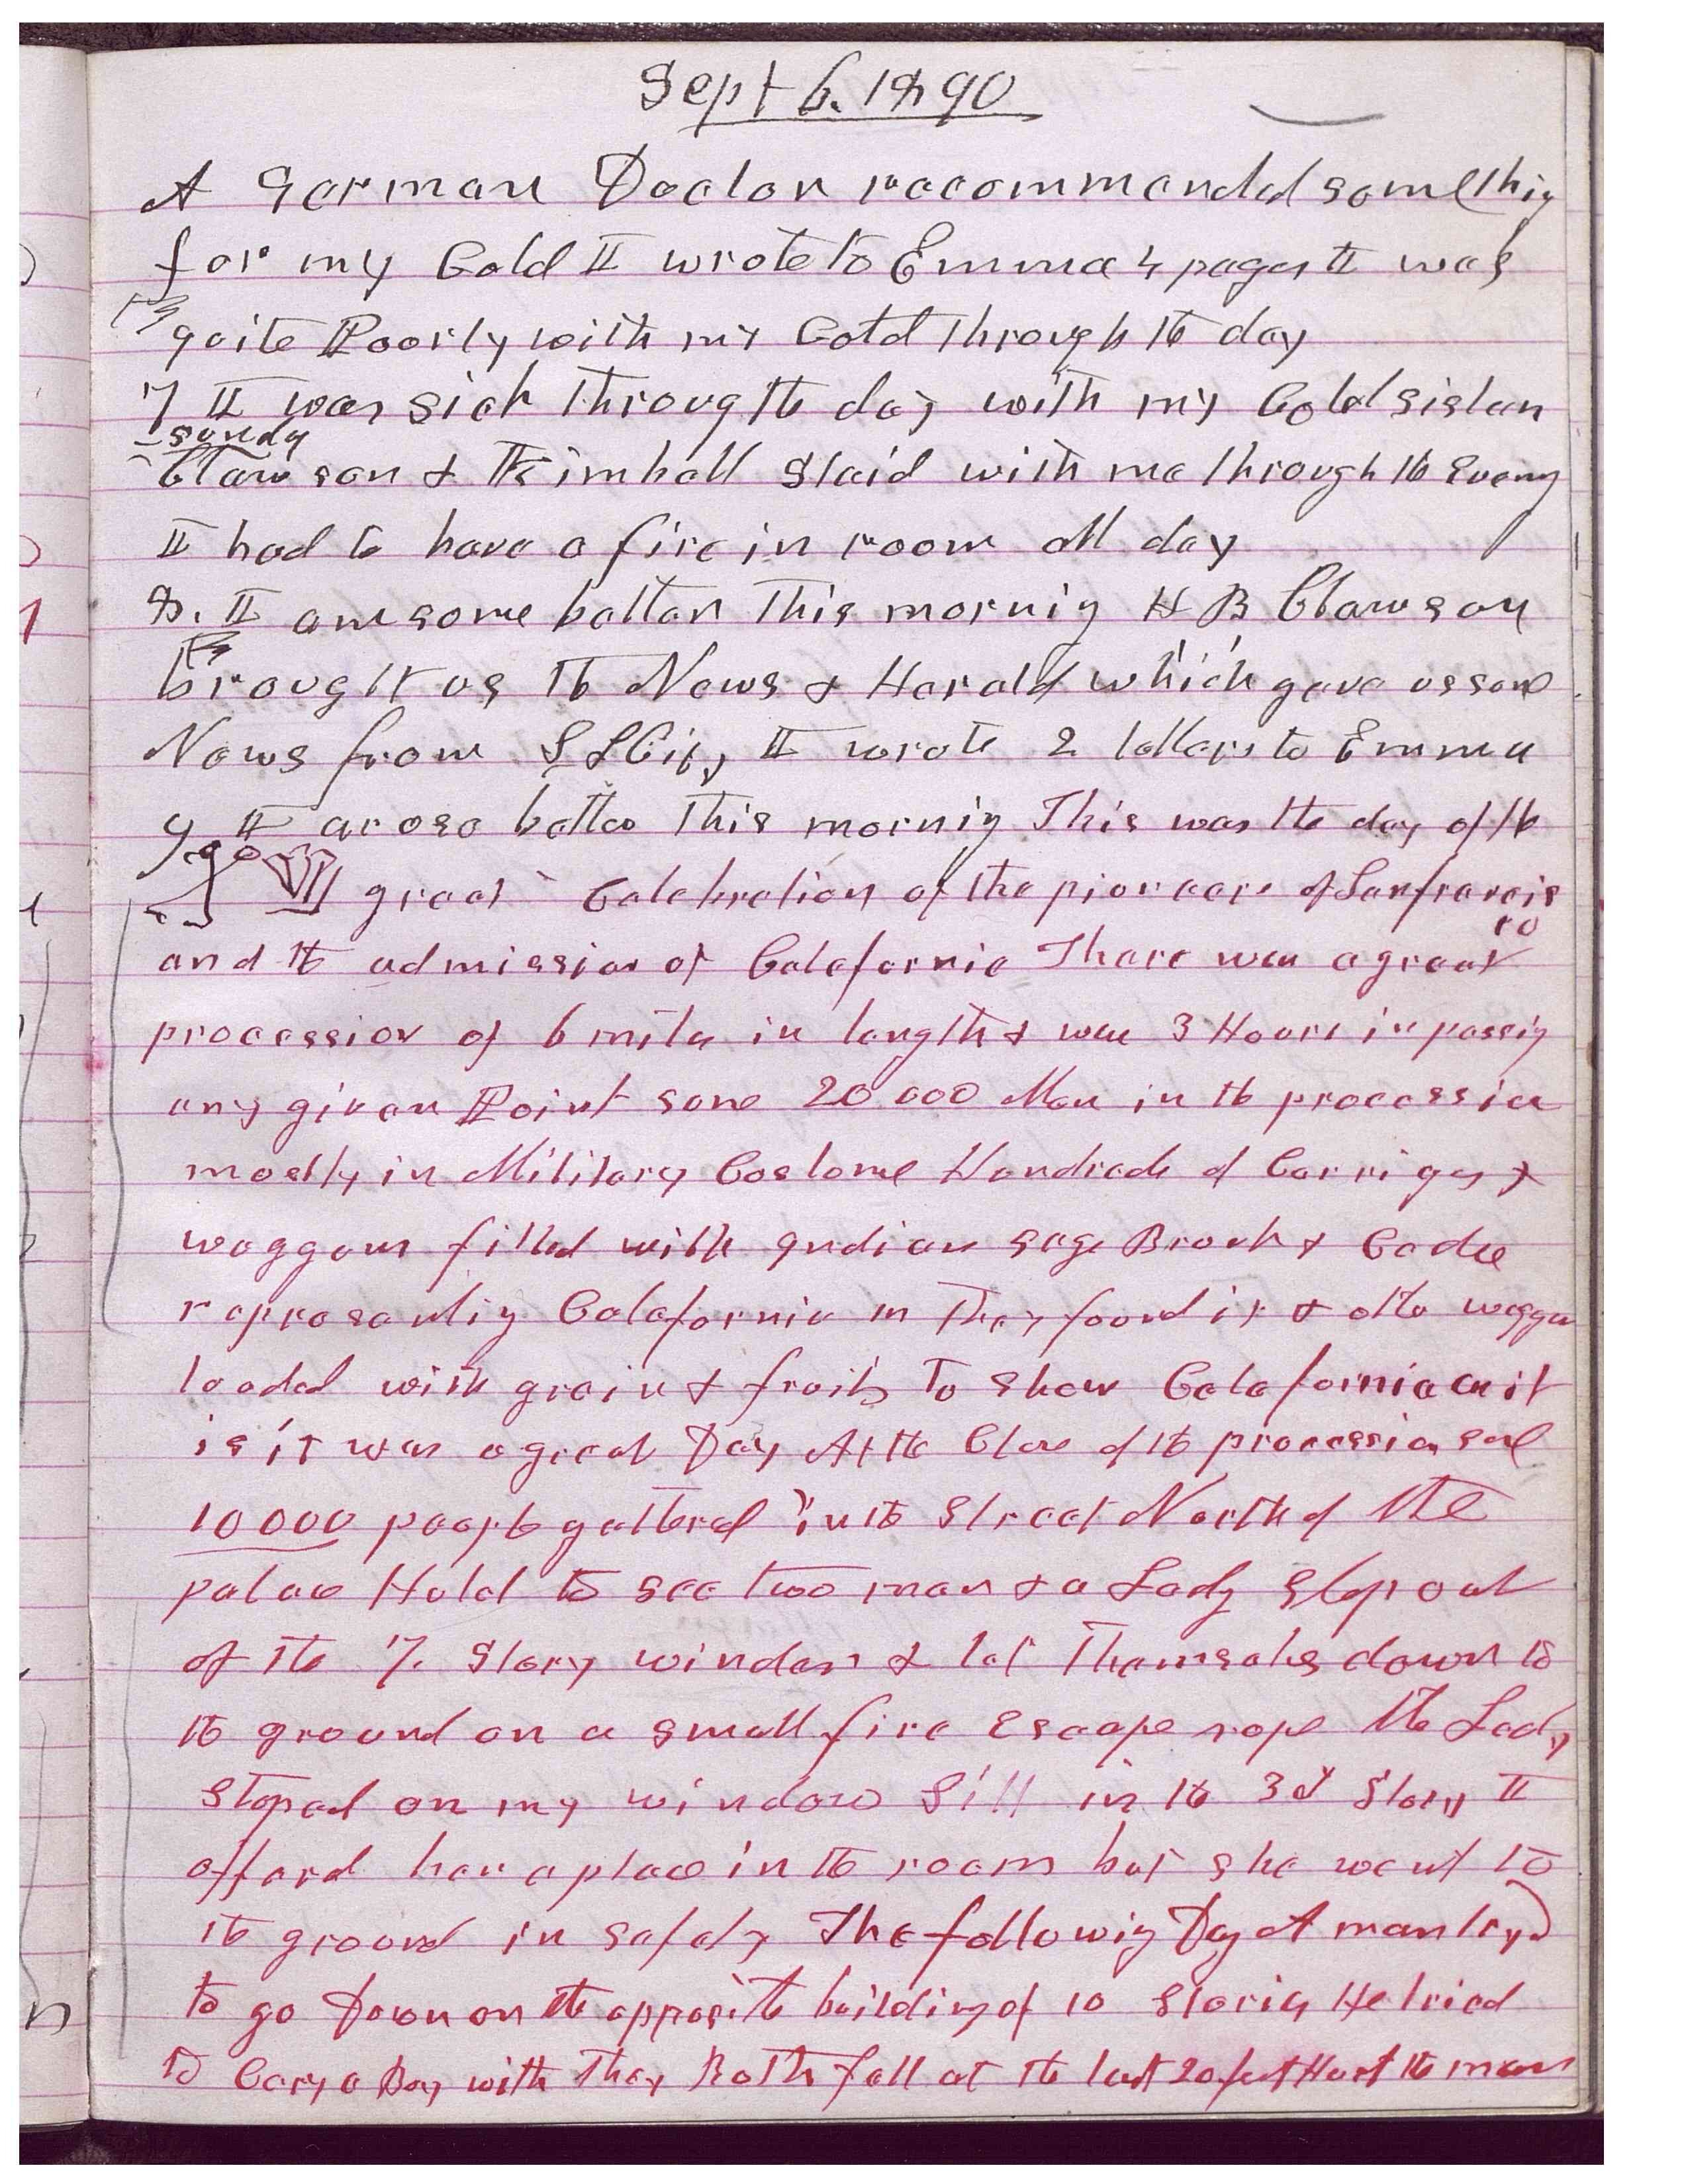 Sept 6. 1890
A German Doctor recommended somethig
for my Cold I wrote to Emma 4 pages I was
quite Poorly with my Cold through the day
7 I was sick throug the day with my Cold sister
sundy
Clawson & Kimball staid with me through the Eveng
I had to have a fire in room all day
8. I am some better This mornig H B Clawson
brought us the News & Herald which gave us some
News from SLCity I wrote 2 letters to Emma
9 I arose better This mornig This was the day of the
great Celebration of the pioneers of Sanfrancis
co
and the admission of Calefornia There was a great
procession of 6 miles in length & was 3 Hours in passig
any given Point some 20 000 Men in the procession
mostly in Military Costome Hundreds of Carriges &
waggons filled with Indian sage Brush &
representig Calafornia as They found it & other waggons
loaded with grain & fruits To show Calafornia as it
is it was a great Day At the Close of the procession some
10 000 people gatherd in the Street North of the
palace Hotel to see two men & a Lady step out
of the 7. Story window & let Themselves down to
the ground on a small fire Escape rope the Lady
stoped on my window Sill in the 3d Story I
offerd her a place in the room but she went to
the ground in safety The followig Day A man tryd
to go Down on the opposite building of 10 Stories He tried
to Cary a Boy with They Both fell at the last 20 feet Hurt the man